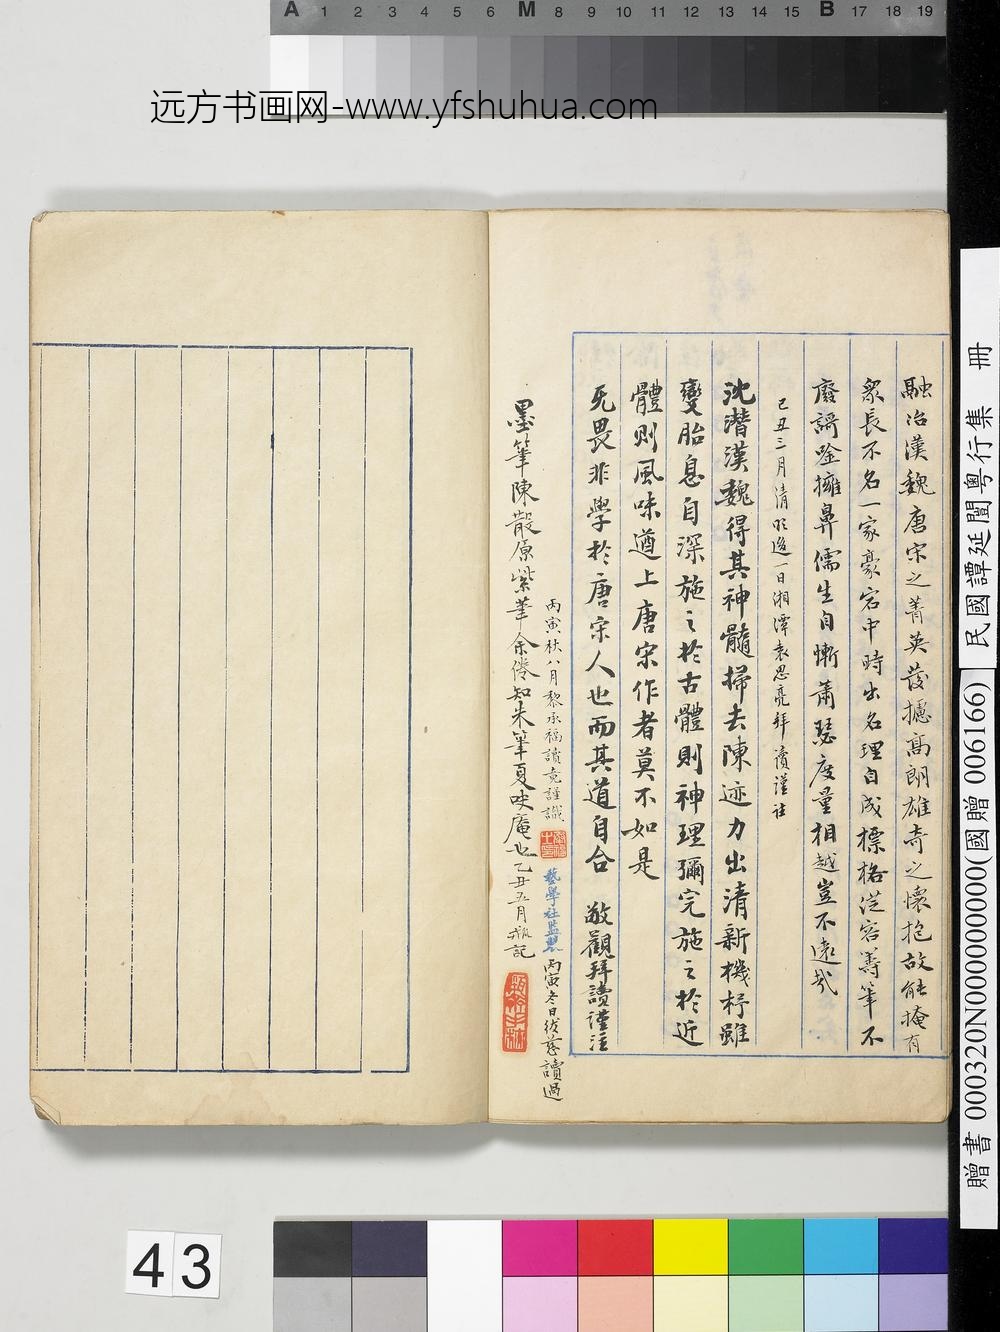 A 1 2 3 4 5 6 M 8 9 10 11 12 13 14 15 B 17 18 19
远方书画网-www.yfshuhua.com
融冶漢魏唐宋之菁英發攄高朗雄奇之懷抱故能掩有
衆長不名一家豪宕中時出名理自成標格從容籌筆不
廢謌唫擁鼻儒生自慚蕭瑟度量相越豈不遠哉
己丑三月清明後一日湘潭袁思亮拜讀謹注
沈潛漢魏得其神髓掃去陳迹力出清新機杼雖
變胎息自深施之於古體則神理彌完施之於近
體則風味遒上唐宋作者莫不如是
无畏非學於唐宋人也而其道自合 敬觀拜讀謹注
丙寅秋八月黎承福讀竟謹識
藝學社監製
丙寅冬日 慈讀過
墨筆陳散原紫筆余倦知朱筆夏吷庵也乙丑五月瓶記
民國譚延闓粵行集 冊
贈書 000320N000000000(國贈 006166)
43